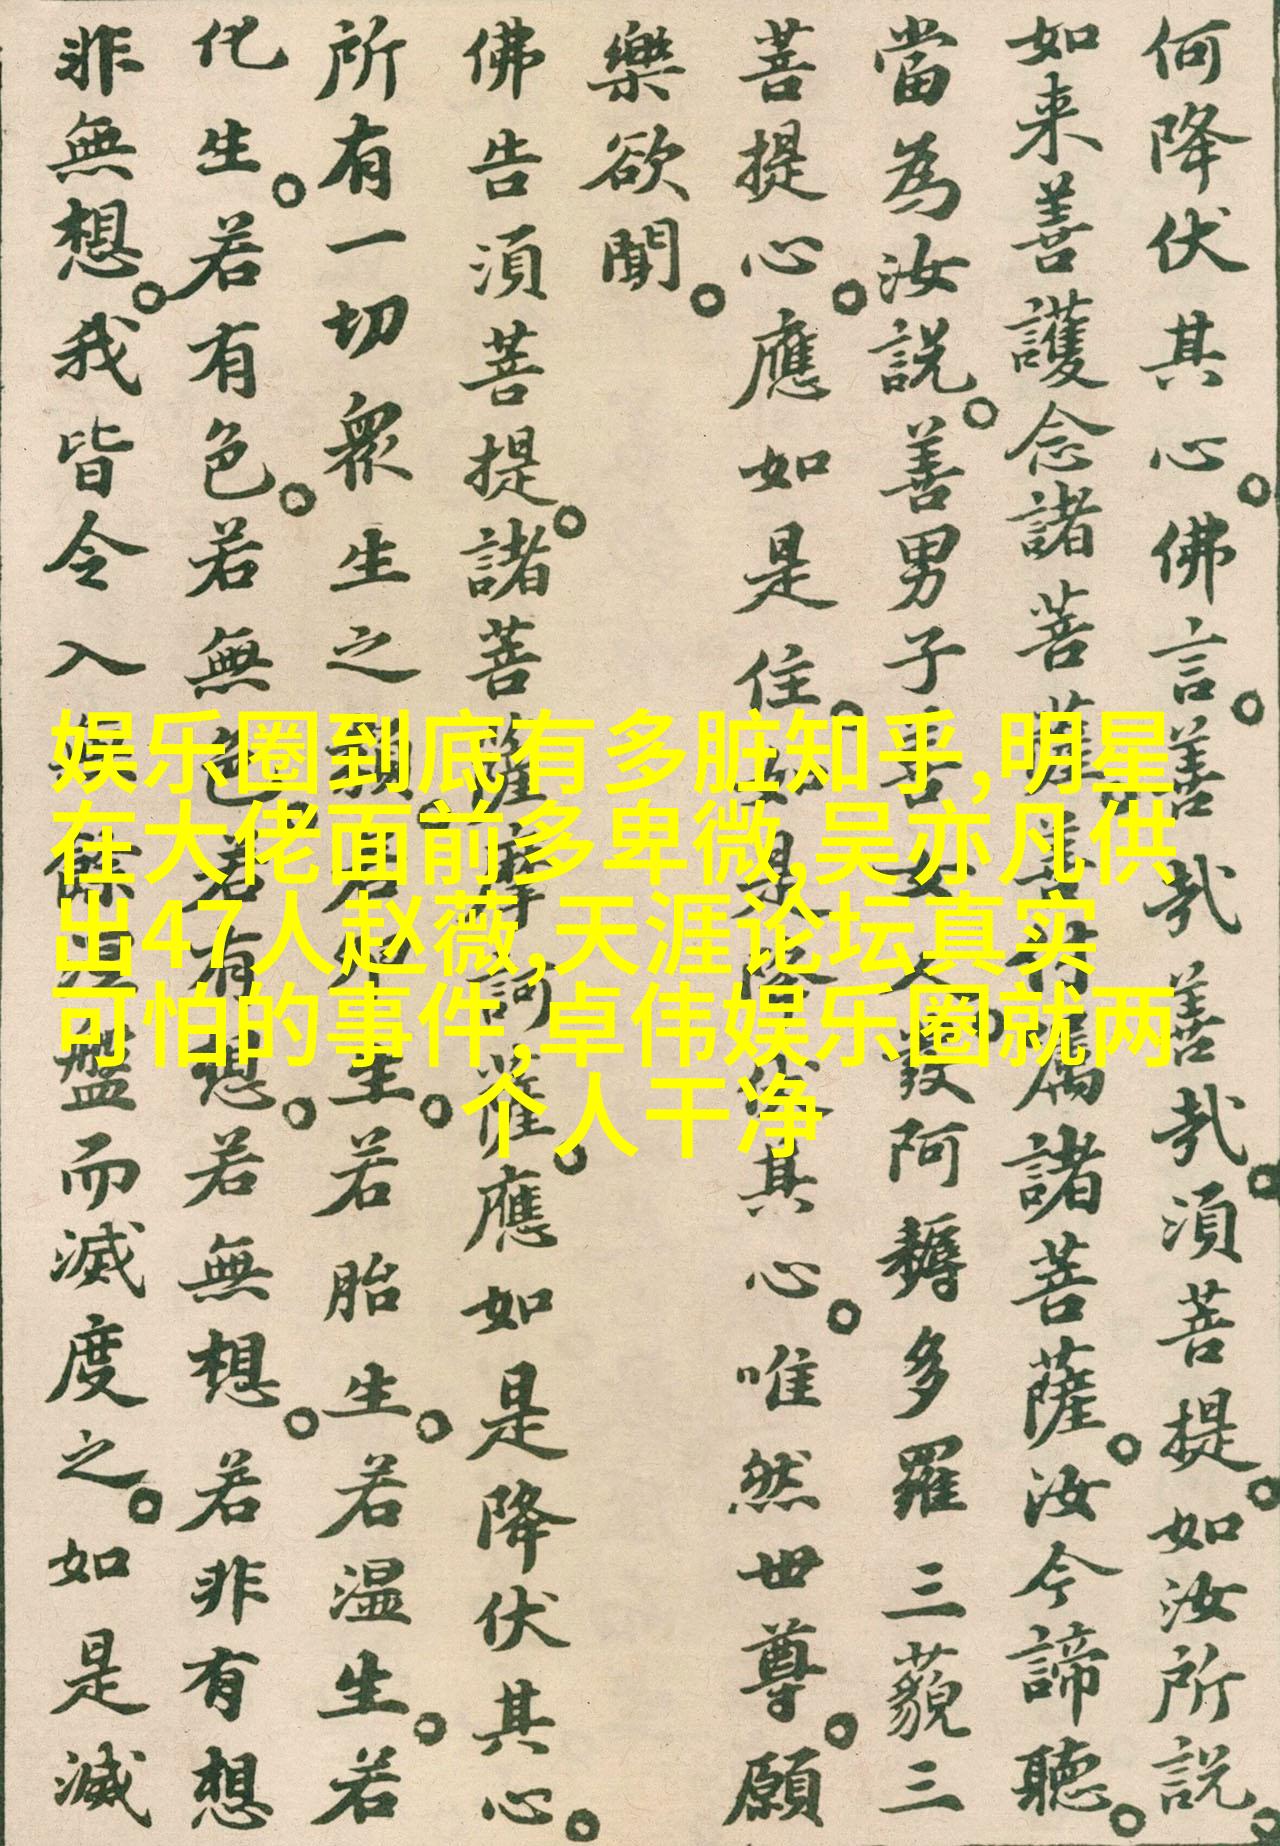 何降伏其心。佛言。善哉善哉。須菩提。如汝所說。
如来善護念諸菩薩。善付属諸菩薩。汝今諦聽。
當為汝説。善男子善女人。發阿耨多羅三藐三
菩提心。應如是住。如是降伏其心。唯然世尊。願
樂欲聞。
佛告須菩提。諸菩薩摩訶薩。應如是降伏其心。
所有一切衆生之類。若卵生。若胎生。若温生。若
化生。若有色。若無色。若有想。若無想。若非有想
非無想。我皆令入無餘涅槃而滅度之。如是滅
娱乐圈到底有多脏知乎,明星
在大佬面前多卑微,吴亦凡供
出47人赵薇,天涯论坛真实
可怕的事件,卓伟娱乐圈就两
个人干净